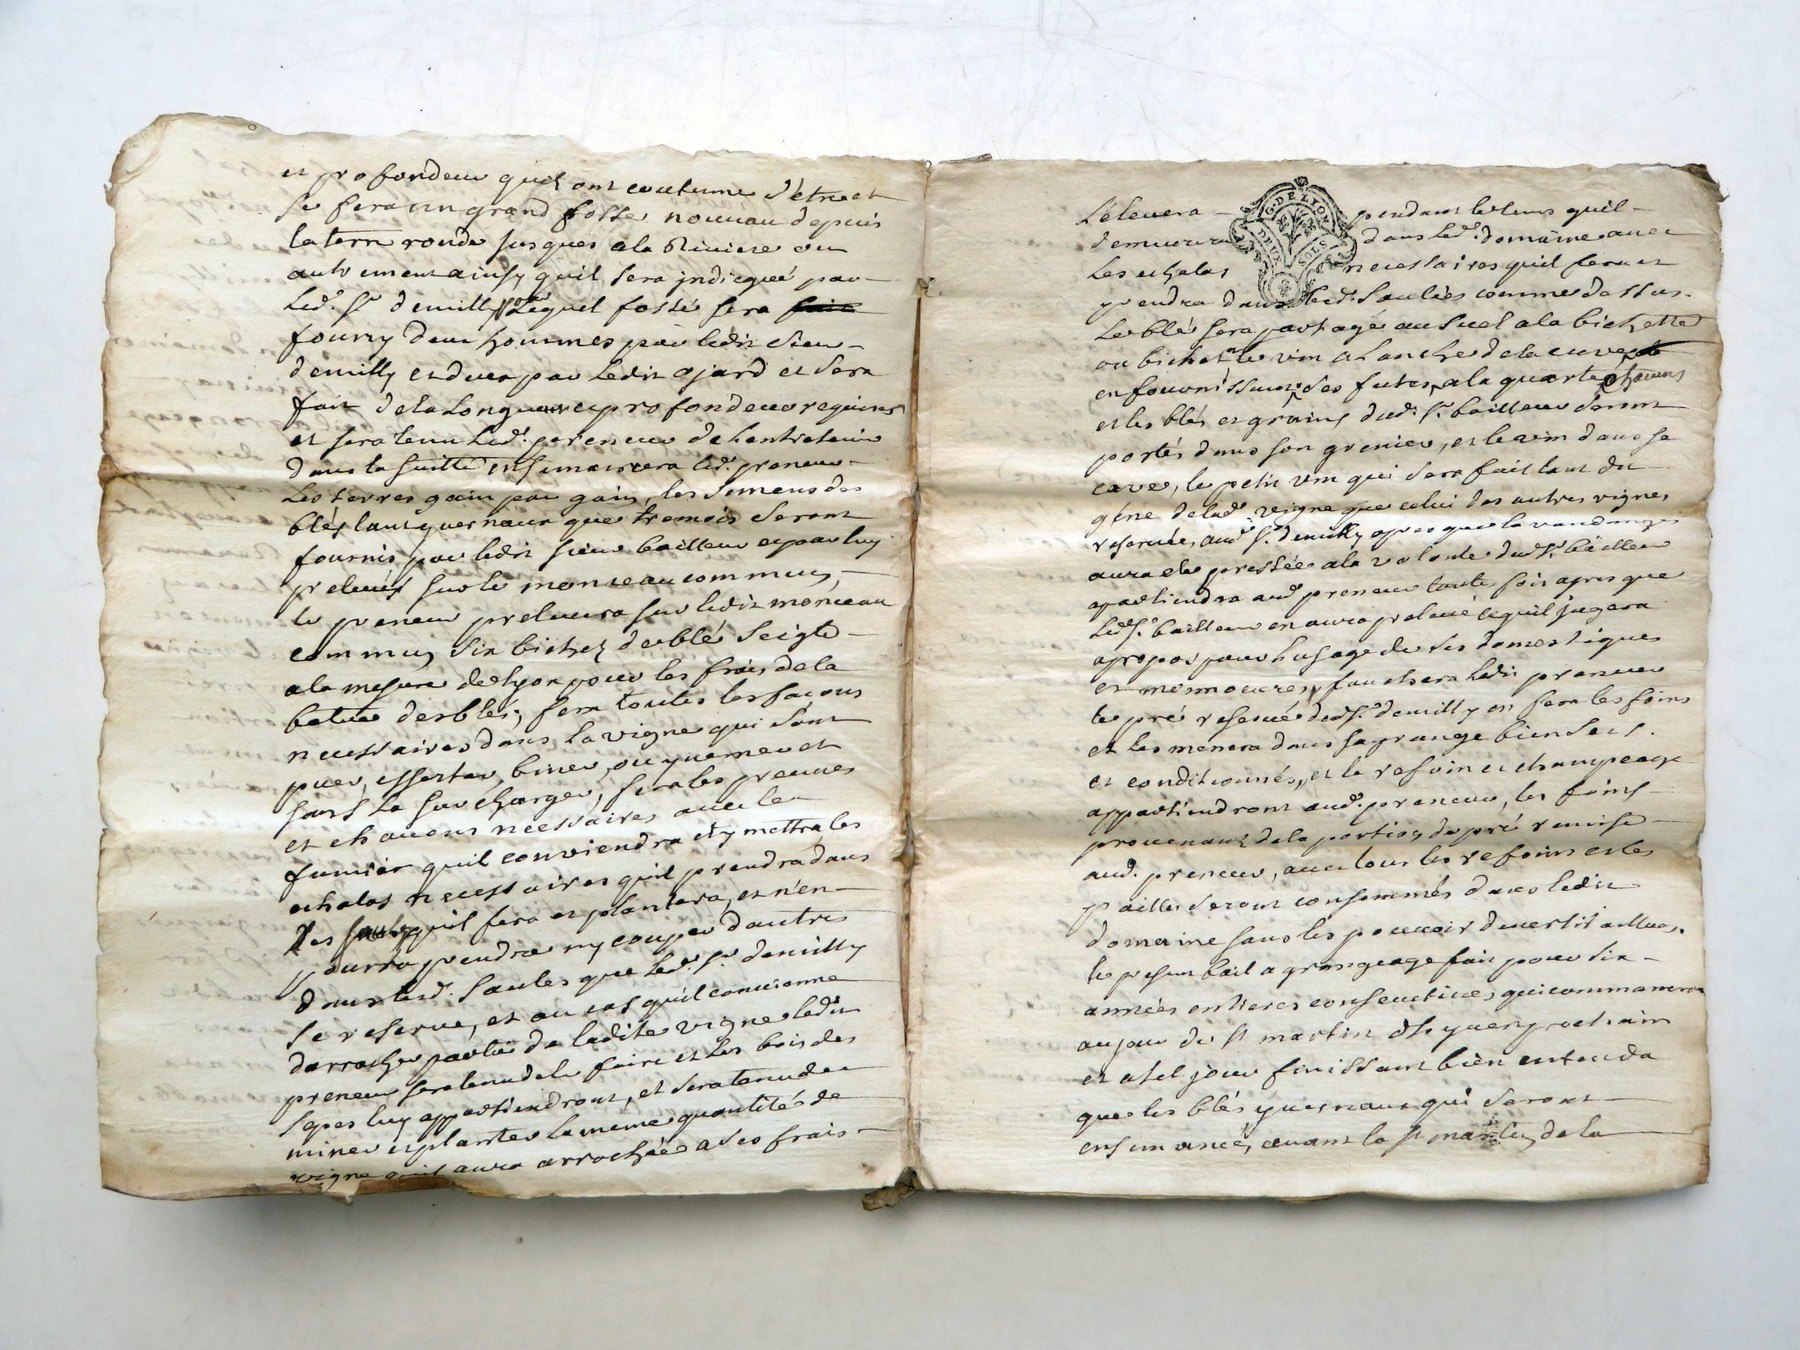 et profondeur quils ont coutume d'être et
se fera un grand fossé nouveau depuis
la terre ronde jusques a la Riviere ou
autrement ainsy quil sera indicqué par
led. Sr demilly lequel fossé sera
fourny deux hommes par ledit Sieur
demilly et deux par ledit ojard et sera
fait de la Longueur et profondeur requises
et sera tenu led. preneur de Lentretenir
dans la suitte ensemancera led. preneur
Les terres gain par gain, les semens des
bléz tant yvernaux que tremois seront
fournis par ledit sieur bailleur et par luy
prelevés sur le monceau commun,
le preneur prelevera sur ledit monceau
commun six bichez de blé seigle
a la mesure de lyon pour les frais de la
batue des blés, fera toutes les façons
necessaires dans la vigne qui sont
puer, essarter, biner, ou yverner et
sans la surcharger, fera les preuves
et chavons necessaires avec le
fumier quil conviendra et y mettra les
echalas necessaires quil prendra dans
les quil fera et plantera, et n'en
pourra prendre ny couper d'autres
dans lesd. saules que led. Sr demilly
se reserve, et au cas quil convienne
darracher partie de ladite vigne ledit
preneur sera tenu de le faire et les bois des
seps luy appartiendront, et sera tenu de
miner et planter la meme quantité de
vigne quil aura arrachée a ses frais
G. DE LYON
DEUX SOLS
L'elevera pendant le tems quil
demeurera dans led. domaine avec
Les echalas necessaires quil fera et
prendra dans lesd. Saulées comme dessus.
Le blé sera partagé au suel a la bichette
ou bichet, le vin a Lanche de la cuve
en fournissant ses futes, a la quarte
et les blés et grains dud. Sr. bailleur seront
portés dans son grenier, et le vin dans sa
cave, le petit vin qui sera fait tant du
gêne de lad. vigne que celui des autres vignes
reservées aud. Sr. demilly apres que la vandange
aura eté pressée a la volonté dud. Sr. bailleur
apartiendra aud. preneur toutes fois apres que
led. Sr. bailleur en aura prelevé ce quil jugera
apropos pour L'usage de ses domestiques
et manoeuvres, fauchera ledit preneur
le pré reservé dud. Sr. demilly en fera les foins
et les menera dans sa grange bien secs
et conditionnés, et le refoin et champeage
appartiendront aud. preneur, les foins
provenants de la portion de pré remise
aud. preneur, avec tous les refoins et les
pailles seront consommés dans ledit
domaine sans les pouvoir divertir ailleurs,
le present bail a grangeage fait pour six
années entieres consecutives qui commancera
au jour de St martin dhyver prochain
et a tel jour finissant bien entendu
que les blés yvernaux qui seront
ensemancés avant la St martin de la